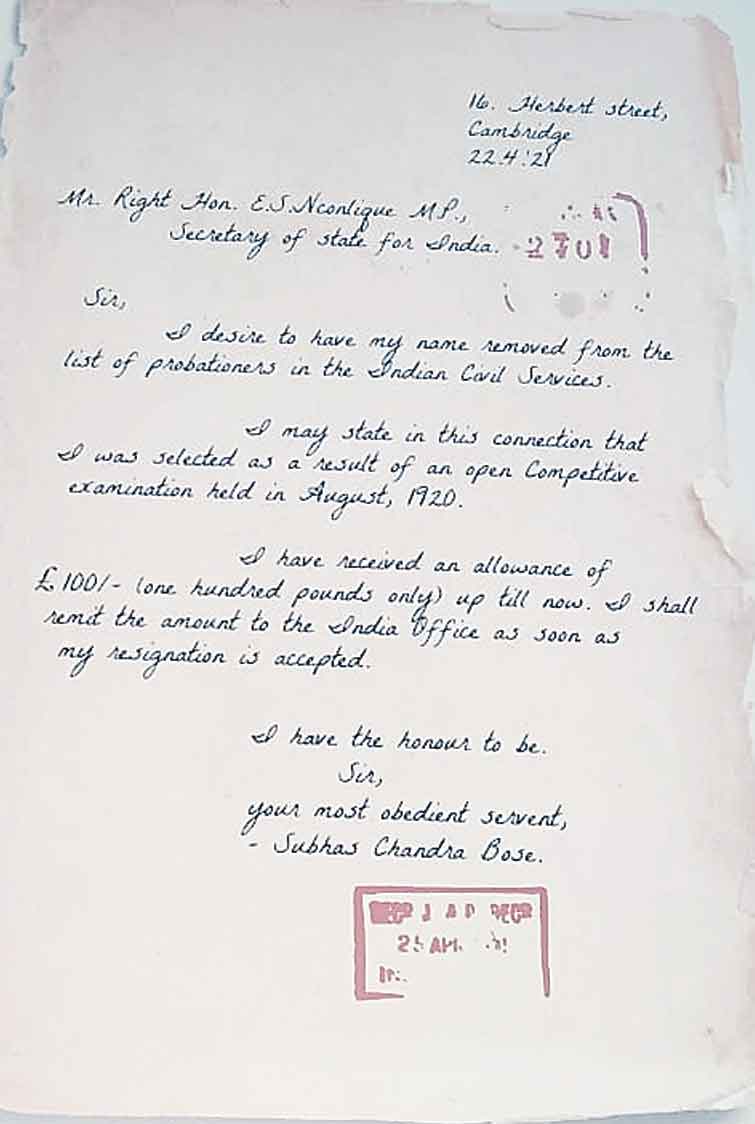 16. Herbert street,
Cambridge
22.4.'21
Mr. Right Hon. E.S.Nconlique MP.,
Secretary of state for India.
2701
Sir,
I desire to have my name removed from the
list of probationers in the Indian Civil Services.
I may state in this connection that
I was selected as a result of an open Competitive
examination held in August, 1920.
I have received an allowance of
£100/- (one hundred pounds only) up till now. I shall
remit the amount to the India Office as soon as
my resignation is accepted.
I have the honour to be.
Sir,
your most obedient servent,
- Subhas Chandra Bose.